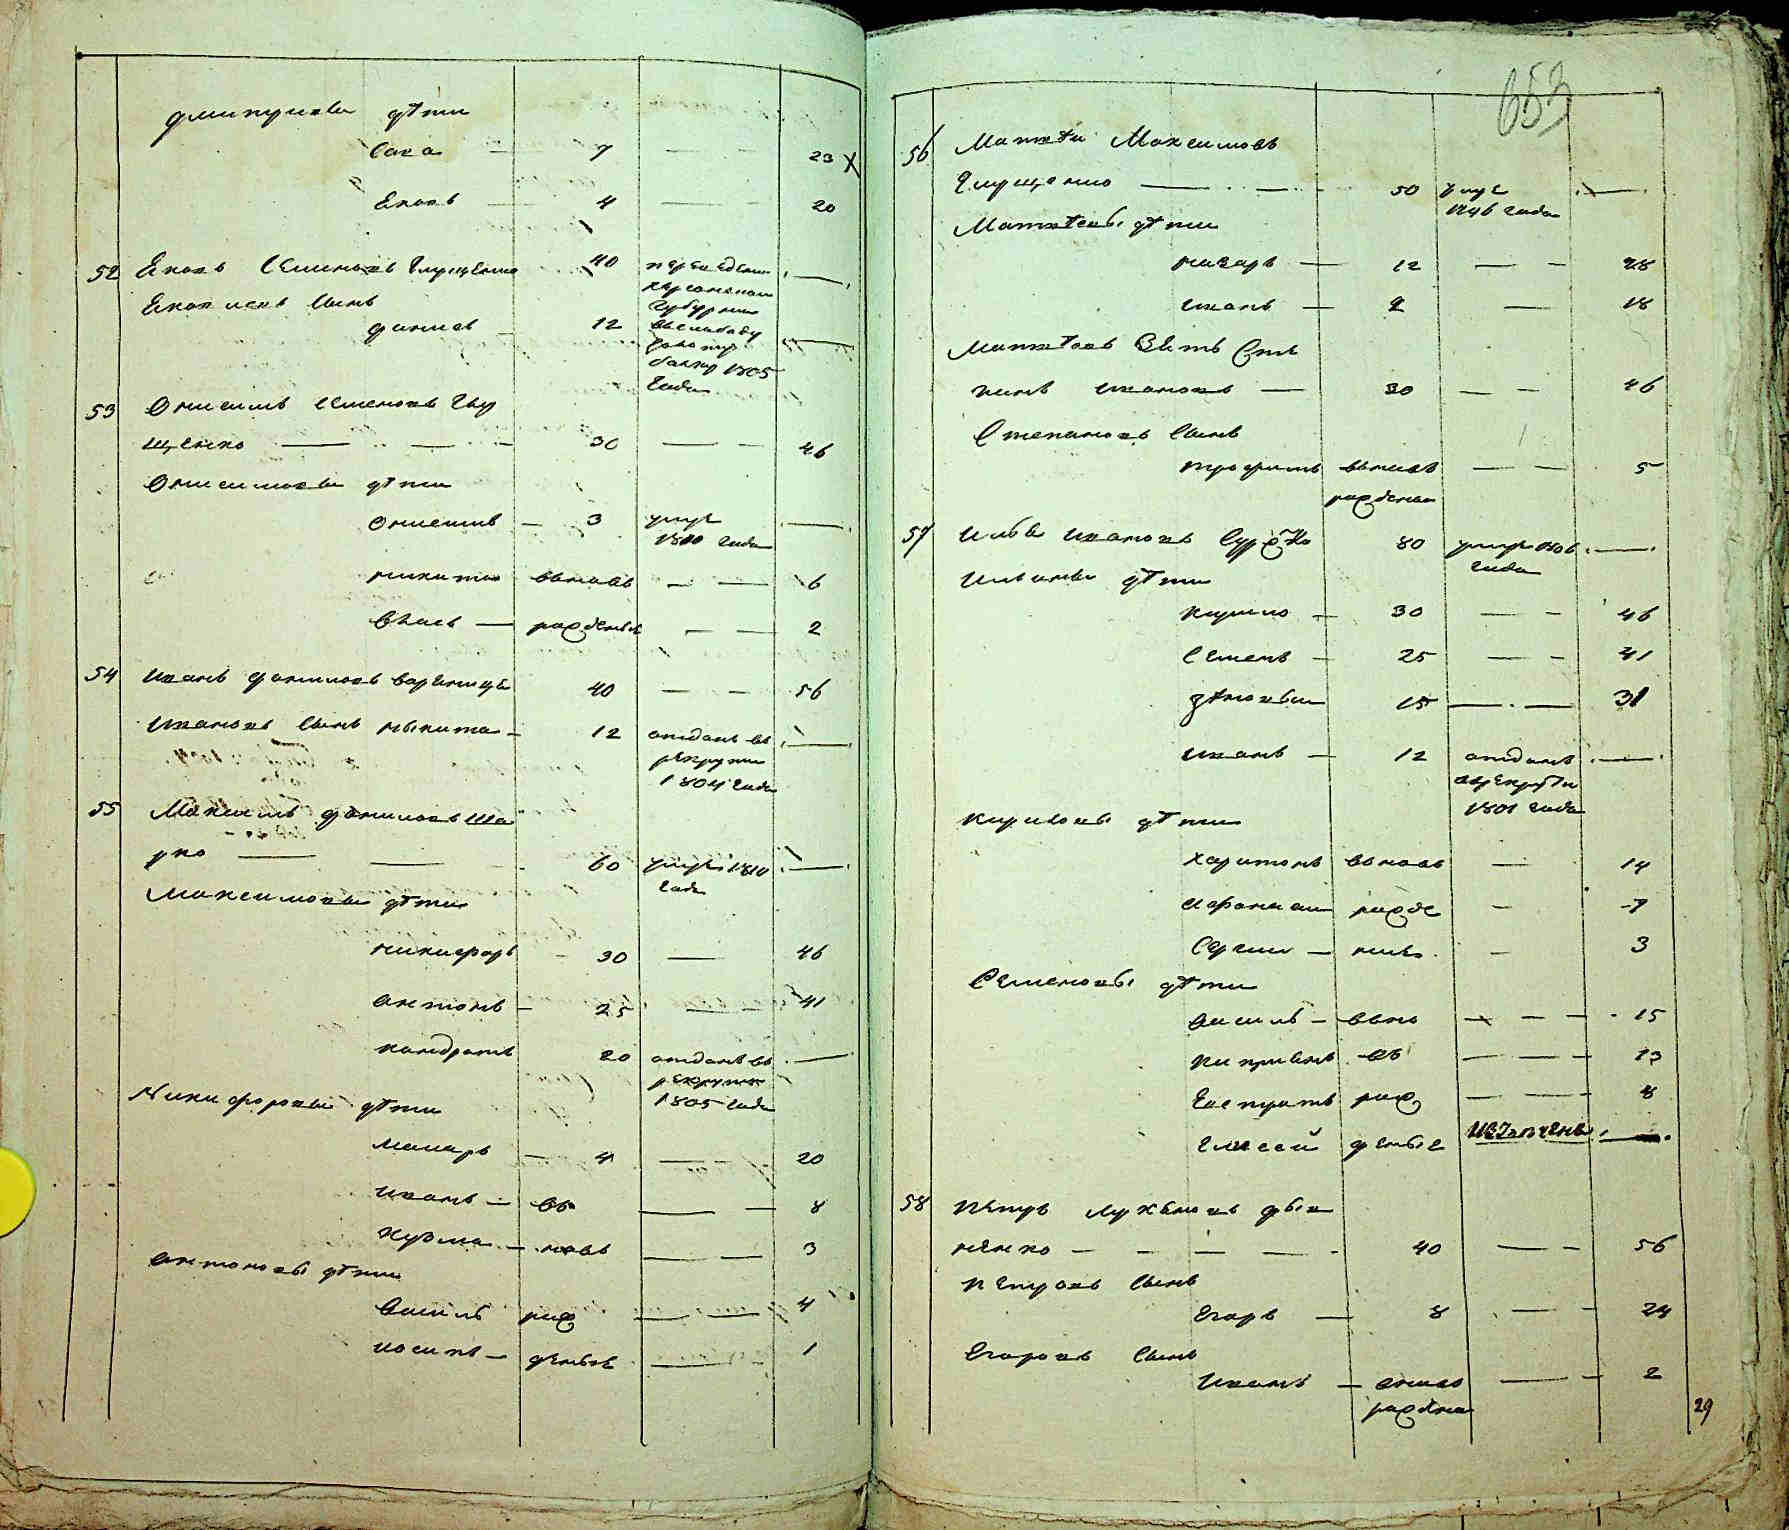 Дмитриевы дѣти
Сава — 7 — — 23
Яковъ — 4 — — 20
52 Яковъ Семеновъ Глущенко 40 переведенъ —
херсонской
Яковлевъ сынъ губернии
Данила — 12 въ слободу —
1805
года
53 Онисимъ Семеновъ Глу
щенко — — 30 — — 46
Онисимовы дѣти
Онисимъ — 3 умре —
1810 года
никита вновь — — 6
Власъ — рожденые — — 2
54 Иванъ Даниловъ 40 — — 56
Ивановъ сынъ Никита — 12 отданъ въ —
рекруты
1804 года
55 Максимъ Даниловъ Ша
рко — — 60 умре 1810 —
года
Максимовы дѣти
никифоръ — 30 — 46
антонъ — 25 — — 41
кондратъ 20 отданъ въ —
рекруты
1805 года
Никифоровы дѣти
макаръ — 4 — — 20
иванъ — въ — — 8
кузма — новь — — 3
антоновы дѣти
Василь рож — — 4
иосипъ — деные — — 1
653
56 Матвѣй Максимовъ
Глущенко — — 50 умре —
1796 года
Матвѣевы дѣти
назаръ — 12 — — 28
иванъ — 2 — 18
Матвѣевъ Зять Сте
панъ ивановъ — 30 — — 46
Степановъ сынъ
трофимъ вновь — — 5
рожденой
57 Илья ивановъ 80 умре 1806 —
года
Ильины дѣти
кирило — 30 — — 46
Семенъ — 25 — — 41
зѣновей 15 — — 31
иванъ — 12 отданъ —
в рекруты
1801 года
кириловы дѣти
харитонъ вновь — 14
афанасий рожде — 7
Сергий — ные — 3
Семеновы дѣти
василь — вно — — — 15
киприянъ въ — — — 13
Евстратъ рож — — — 8
Елисей деные —
58 Петръ Лукьяновъ
ненко — — — — 40 — — 56
Петровъ сынъ
Егоръ — 8 — — 24
Егоровъ сынъ
Иванъ — вново — — 2
рождена
29